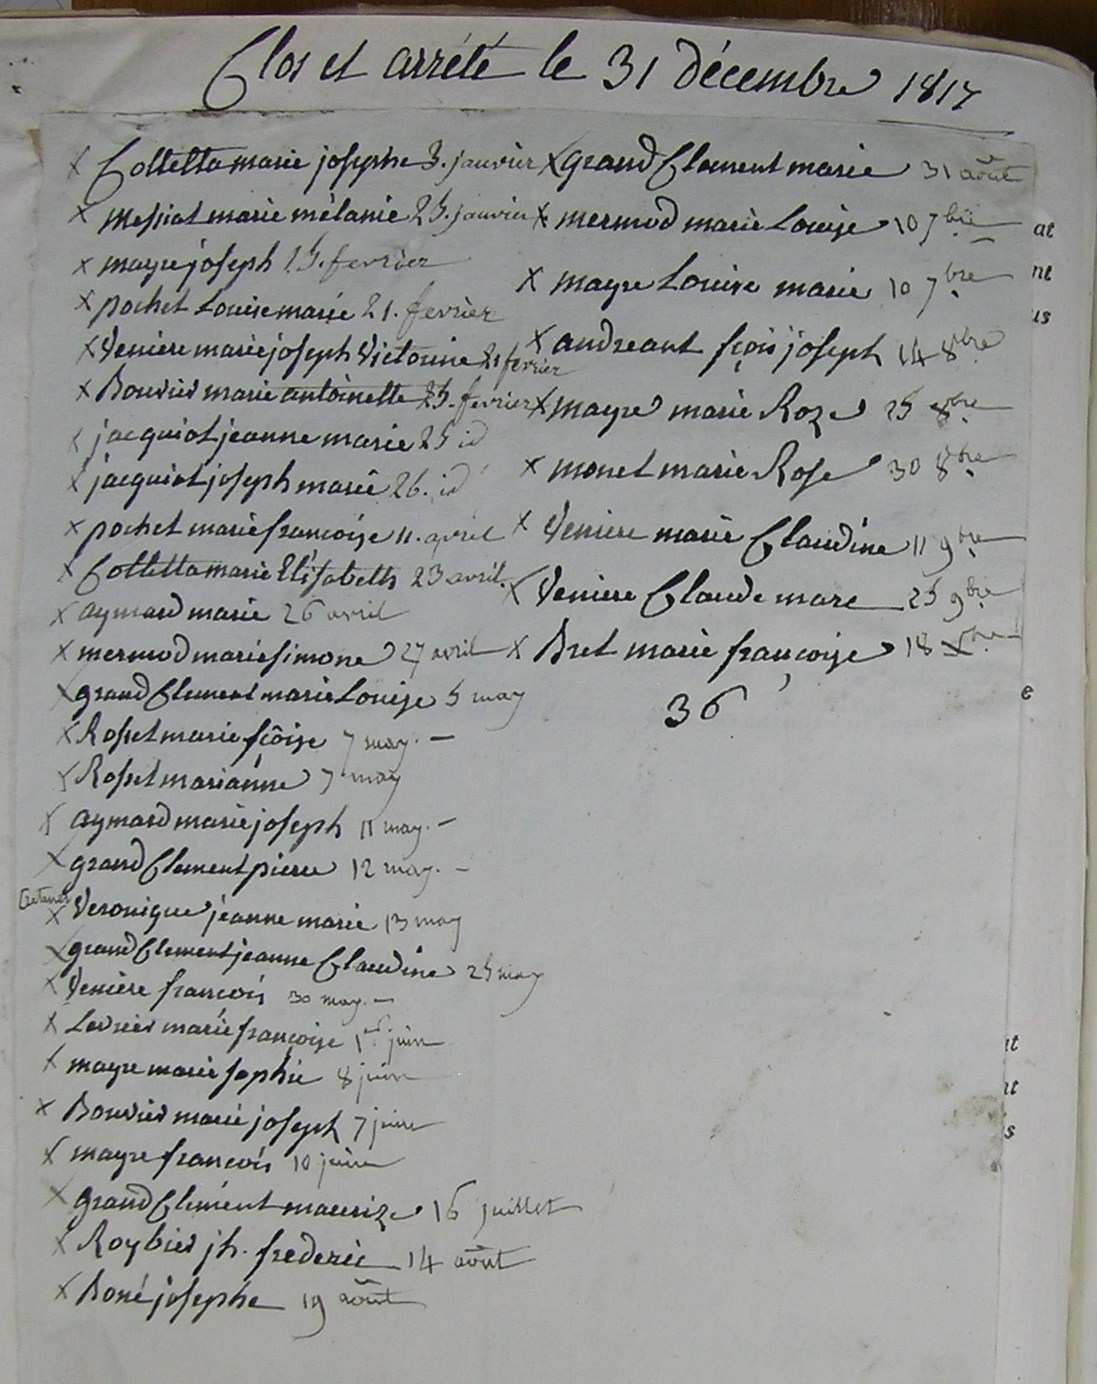 Clos et arrété le 31 décembre 1817
x Colletta marie josephe 3. janvier
x Messiat marie mélanie 25. janvier
x mayre joseph 15. fevrier
x pochet Louise marie 21. fevrier
x Veniere marie joseph Victorine 21 fevrier
x Bouvier marie antoinette 25. fevrier
x jacquiot jeanne marie 25 id
x jacquiot joseph marie 26. id
x pochet marie francoise 11. avril
x Colletta marie Elisabeth 23 avril.
x aymard marie 26 avril
x mermod marie simone 27 avril
x grand Clement marie Louise 5 may
x Rosset marie fçoise 7 may. –
x Rosset marianne 7 may
x aymard marie joseph 11 may. –
x grand Clement pierre 12 may. –
x Veronique jeanne marie 13 may
x grand Clement jeanne Claudine 25 may
x Veniere francois 30 may. –
x Levrier marie françoise 1er juin
x mayre marie sophie 8 juin
x Bouvier marie joseph 7 juin
x mayre francois 10 juin
x grand Clement maurize 16 juillet
x Roybier jh. frederic 14 août
x Boné josephe 19 août
x grand Clement marie 31 août
x mermod marie Louise 10 7bre
x mayre Louise marie 10 7bre
x andreant fçois joseph 14 8bre
x mayre marie Roze 25 8bre
x monet marie Rose 30 8bre
x Veniere marie Claudine 11 9bre
x Veniere Claude marc 25 9bre
x Bret marie françoise 18 Xbre
36
at
nt
us
e
it
nt
s